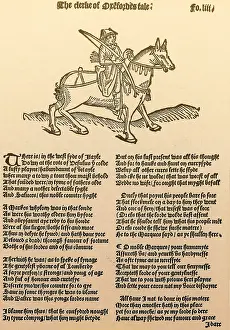 The clerke of Oxfordes tale. Fo. liii.
There is in the west syde of Itayle
Downe at the rote of Vesulus
A lusty playne habundaunt of vitayle
Where many a toun thou mayst behold
That founded were in tyme of fathers olde
And many another delectable syght
And Saluces this noble countre hyght
A Markes whylom was of that londe
As were his worthy elders hym before
And obeysaunt ay redy to his honde
Were al his lieges bothe lesse and more
Thus in delyte he lyueth and hath done yore
Beloued and drad through fauour of fortune
Bothe of his lordes and of his comune
Therwith he was as to speke of lynage
The gentyllest yborne of Lombardy
A fayre person and strong and yong of age
And ful of honour and of curtesy
Discrete ynough his countre for to gye
Saue in some thynges he was to blame
And Walter was this yonge lordes name
I blame hym thus that he consydred nought
In tyme comyng what myght betyde
But on his lust present was al his thought
And for to hauke and hunt on euery syde
Wel nye al other cures lette he slyde
And eke he ne wolde that was worst of all
Wedde no wyfe for ought that myght befall
Onely that poynt his people bare so sore
That flockmele on a day to hym they went
And one of hem that wysest was of lore
Or els that the lorde wolde best assent
That he shulde tel hym what the people ment
Or els coulde he wel shewe suche matere
He to the Marques sayd as ye shall here
O noble Marques your humanyte
Assureth us and yeueth us hardynesse
As ofte as tyme is of necessyte
That we to you may tel our heuynesse
Accepteth lorde of your gentylnesse
That we with pytous hert to you complayne
And lette your eares not my voyce disdayne
Al haue I not to done in this matere
More than another hath in this place
Yet for as moche as ye my lorde so dere
Haue alway shewed me fauour and grace
I dare